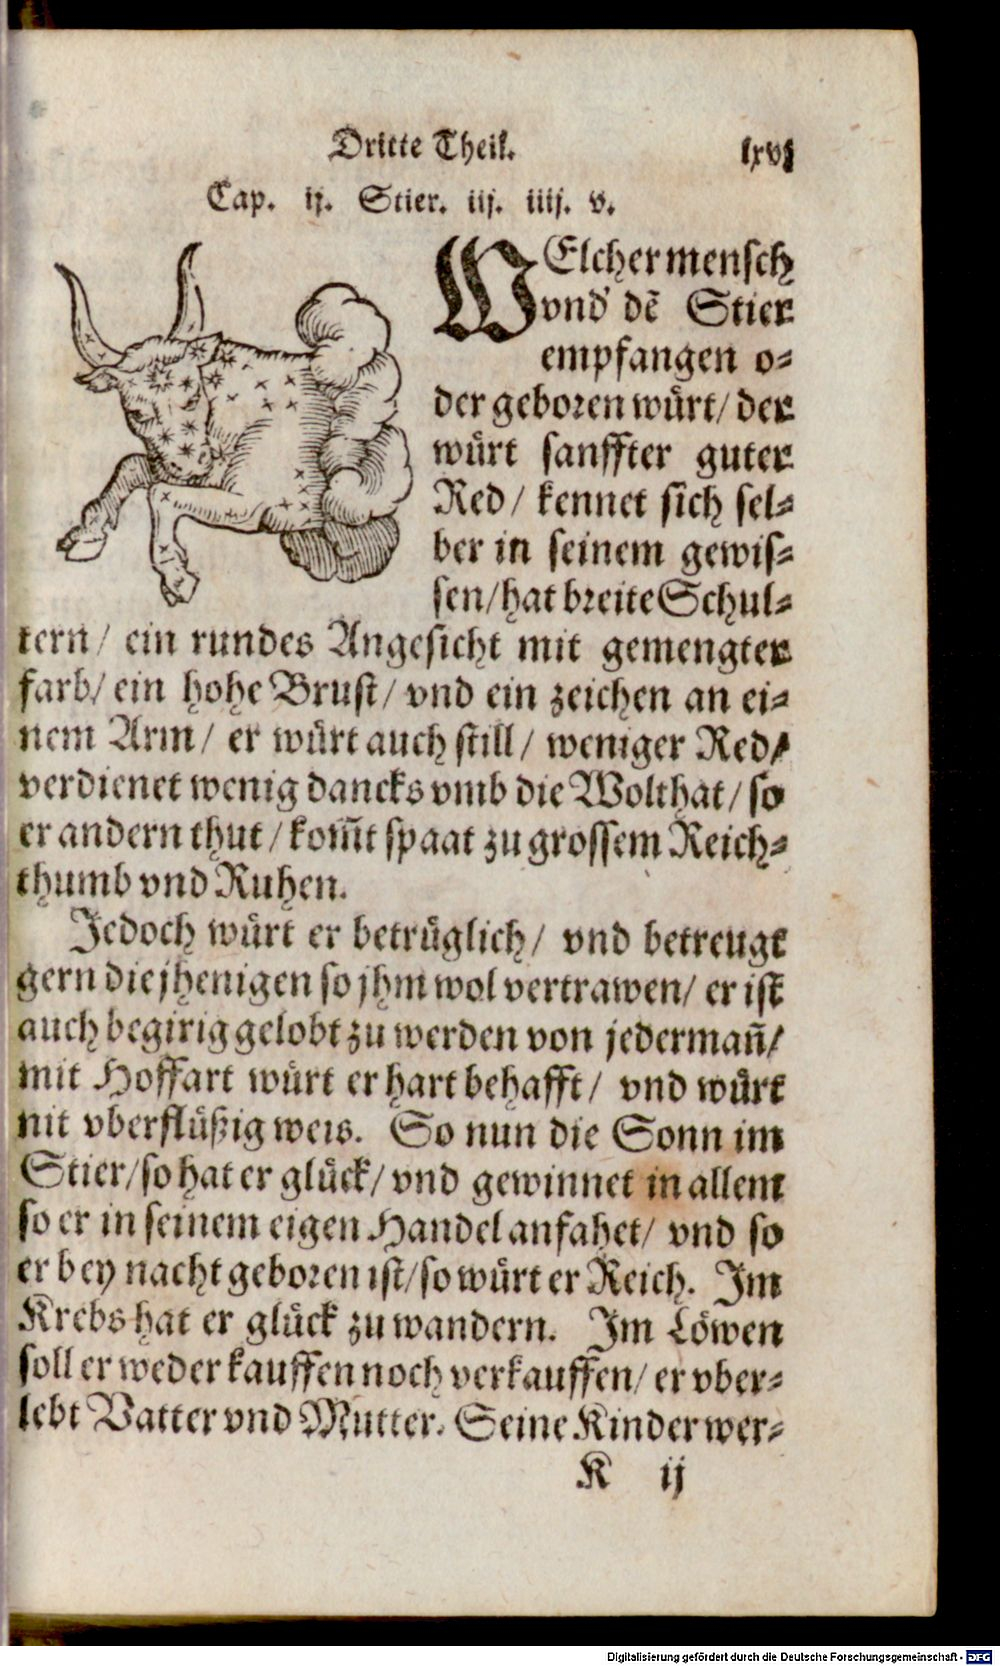 Dritte Theil. lxvj
Cap. ij. Stier. iij. iiij. v.
WElcher mensch
vnd' dē Stier
empfangen o⸗
der geboren wuͤrt/ der
wuͤrt sanffter guter
Red/ kennet sich sel⸗
ber in seinem gewis⸗
sen/ hat breite Schul⸗
tern/ ein rundes Angesicht mit gemengter
farb/ ein hohe Brust/ vnd ein zeichen an ei⸗
nem Arm/ er wuͤrt auch still/ weniger Red/
verdienet wenig dancks vmb die Wolthat/ so
er andern thut/ kom̃t spaat zu grossem Reich⸗
thumb vnd Ruhen.
Jedoch wuͤrt er betruͤglich/ vnd betreugt
gern die jhenigen so jhm wol vertrawen/ er ist
auch begirig gelobt zu werden von jederman̄/
mit Hoffart wuͤrt er hart behafft/ vnd wuͤrt
nit vberfluͤßig weis. So nun die Sonn im
Stier/ so hat er gluͤck/ vnd gewinnet in allem
so er in seinem eigen Handel anfahet/ vnd so
er bey nacht geboren ist/ so wuͤrt er Reich. Im
Krebs hat er gluͤck zu wandern. Im Loͤwen
soll er weder kauffen noch verkauffen/ er vber⸗
lebt Vatter vnd Mutter. Seine Kinder wer⸗
K ij
Digitalisierung gefördert durch die Deutsche Forschungsgemeinschaft - DFG